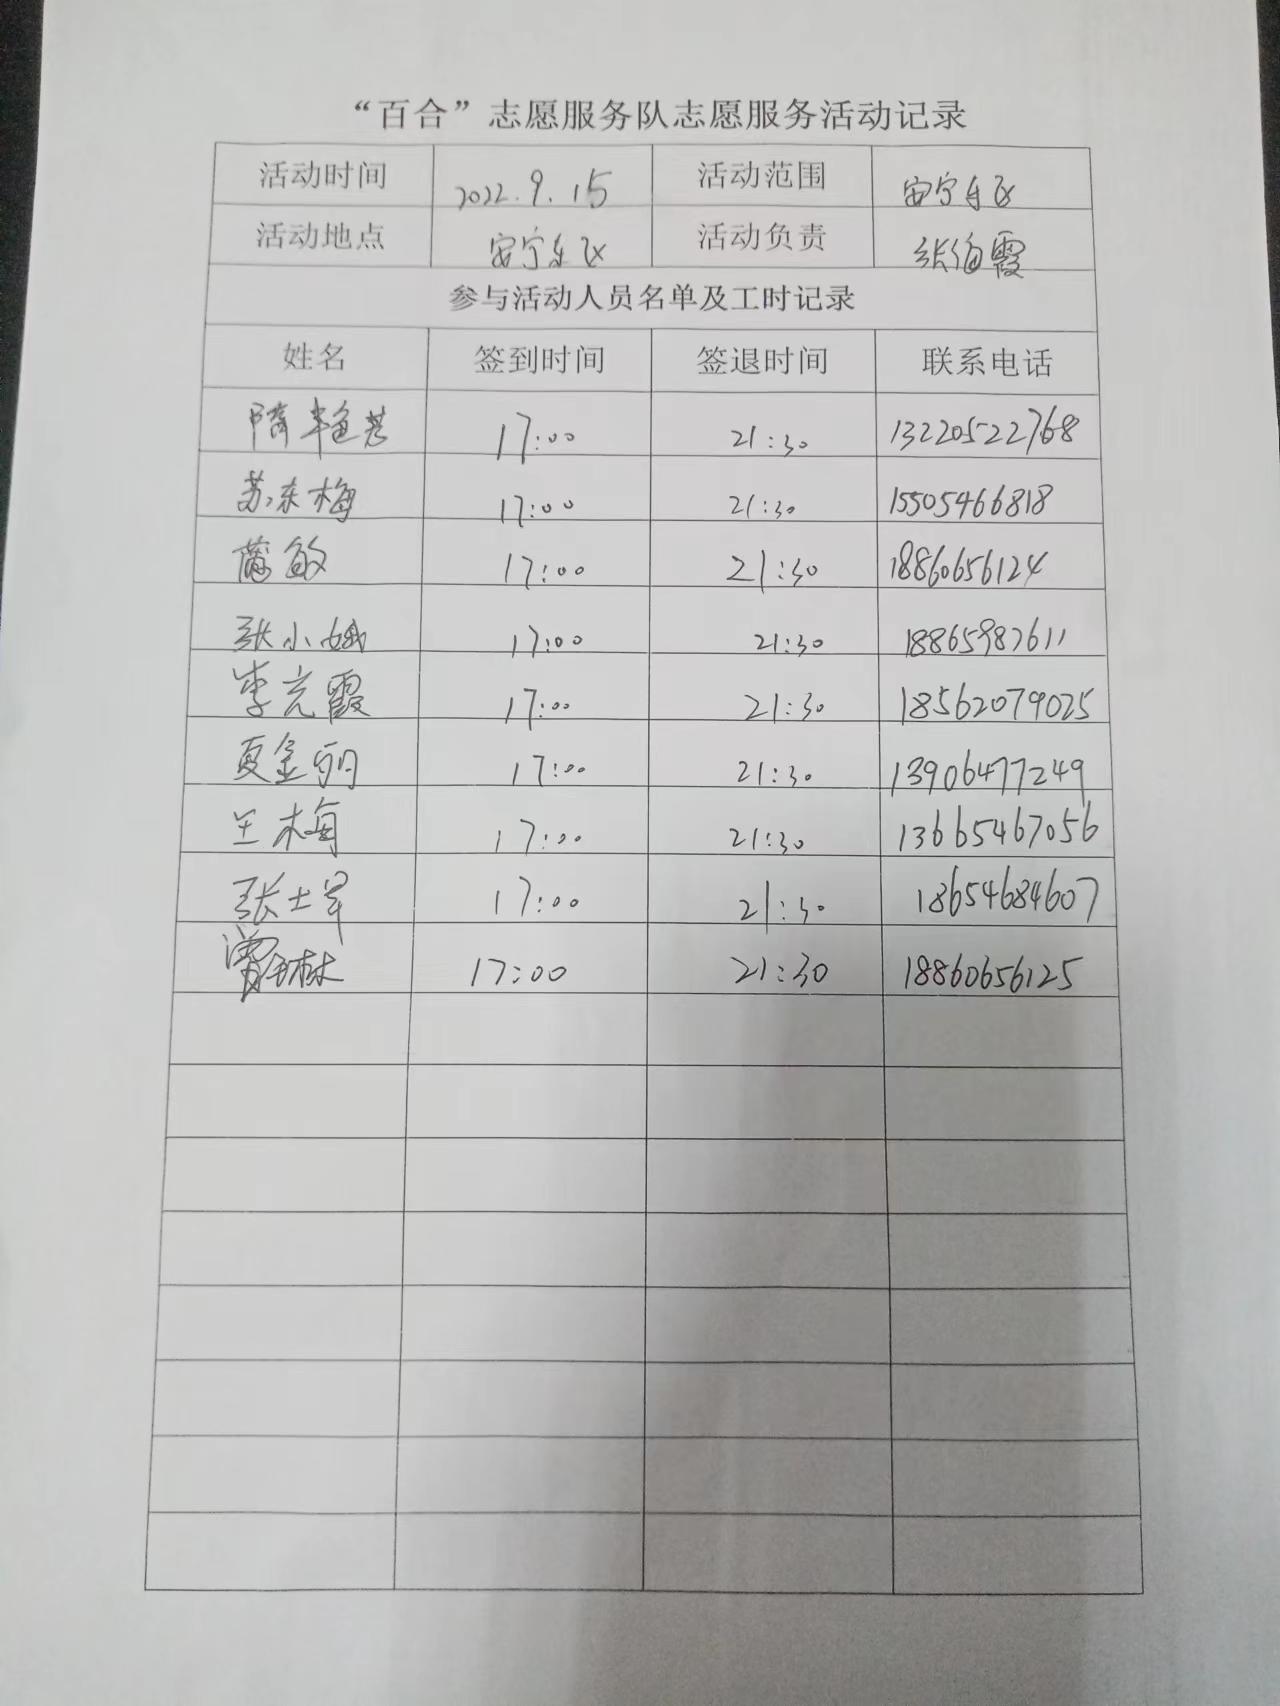 “百合”志愿服务队志愿服务活动记录
活动时间 2022.9.15 活动范围 安宁东区
活动地点 安宁东区 活动负责 张海霞
参与活动人员名单及工时记录
姓名 签到时间 签退时间 联系电话
17:00 21:30 13220522768
苏东梅 17:00 21:30 15505466818
蒲敏 17:00 21:30 18860656124
张小娥 17:00 21:30 18865987611
李克霞 17:00 21:30 18562079025
夏金丽 17:00 21:30 13906477249
王梅 17:00 21:30 13665467056
张士军 17:00 21:30 18654684607
17:00 21:30 18860656125